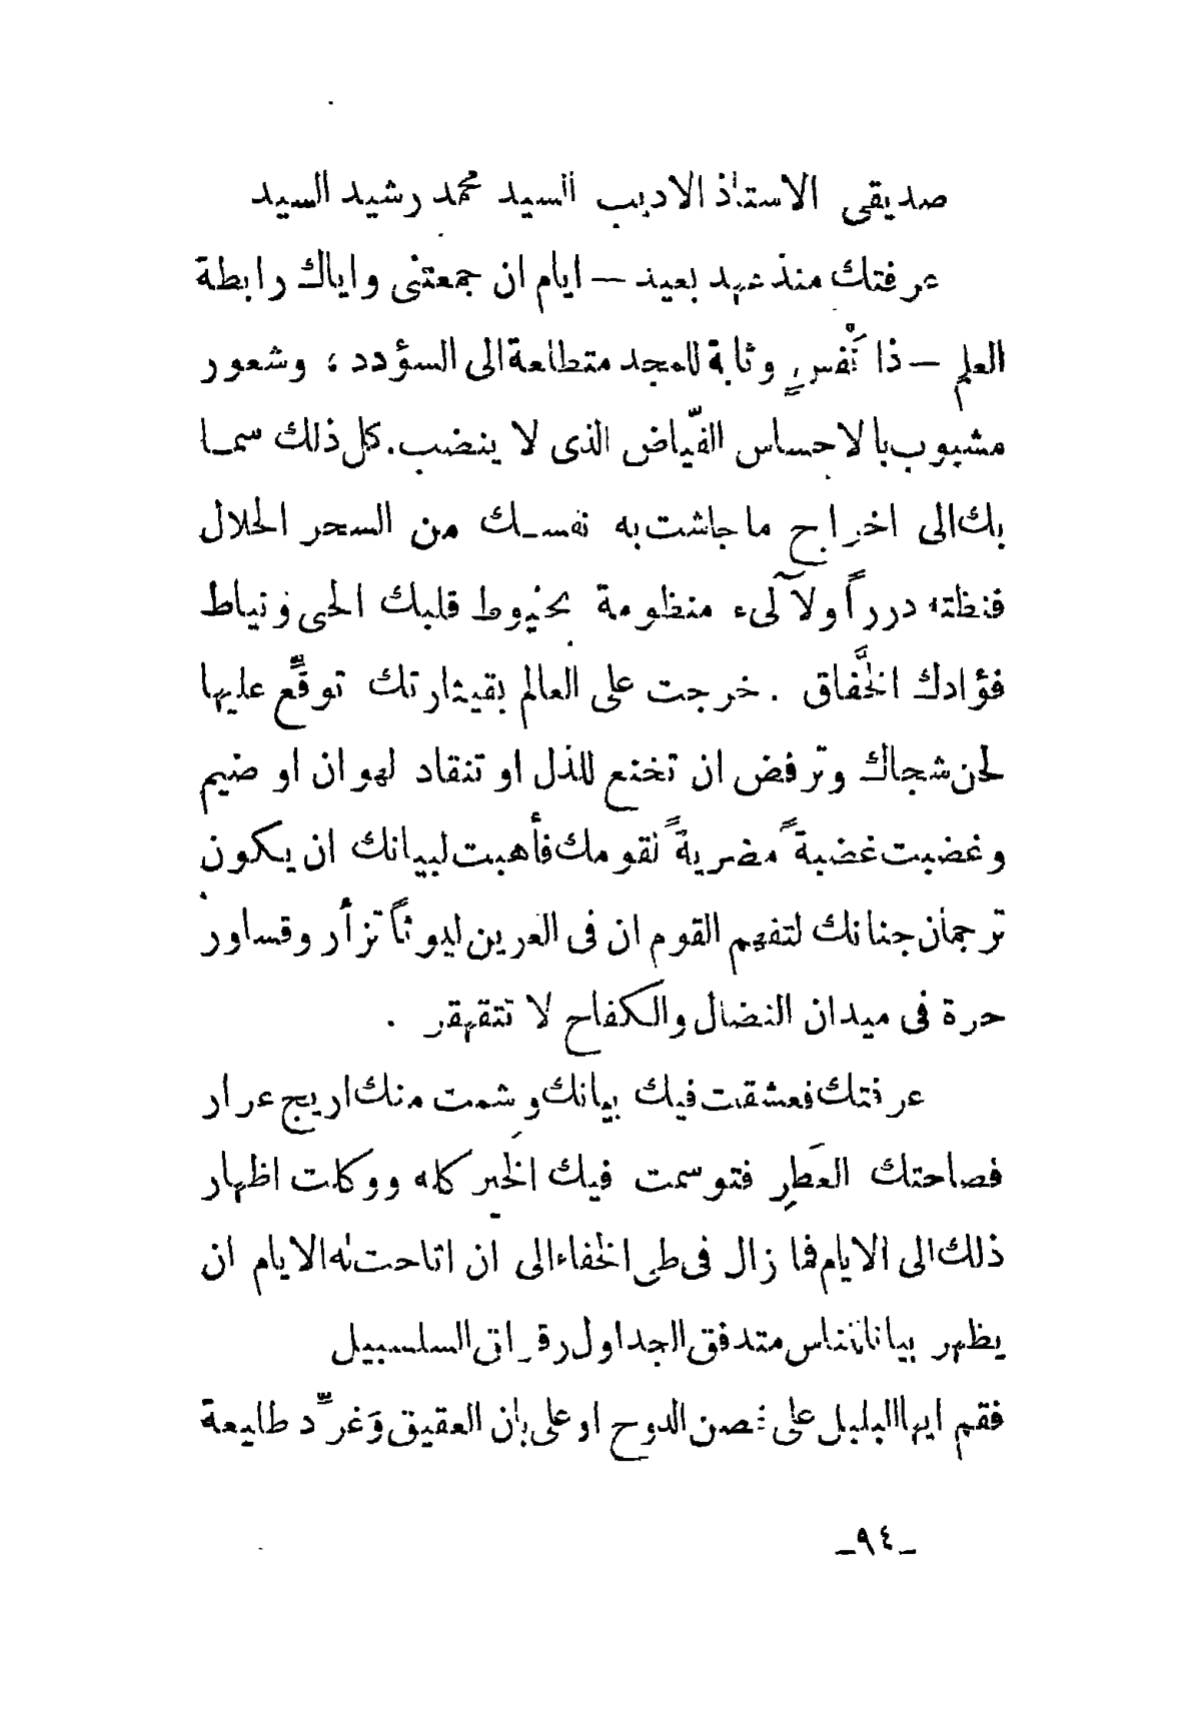 صديقى الاستاذ الاديب السيد محمد رشيد السيد
عرفتك منذ عهد بعيد — ايام ان جمعتنى واياك رابطة
العلم — ذا نَفْسٍ وثابة للمجد متطلعة الى السؤدد ؛ وشعور
مشبوب بالاحساس الفيّاض الذى لا ينضب . كل ذلك سمـا
بك الى اخراج ما جاشت به نفسـك من السحر الحلال
فنظمته درراً ولآلىء منظومة بخيوط قلبك الحى ونياط
فؤادك الخفَّاق . خرجت على العالم بقيثارتك توقِّع عليها
لحن شجاك وترفض ان تخنع للذل او تنقاد لهوان او ضيم
وغضبت غضبةً مضريةً لقومك فأهبت لبيانك ان يكون
ترجمان جنانك لتفهم القوم ان فى العرين ليوثاً تزأر وقساور
حرة فى ميدان النضال والكفاح لا تتقهقر .
عرفتك فعشقت فيك بيانك وشممت منك اريج عرار
فصاحتك العَطِر فتوسمت فيك الخَير كله ووكلت اظهار
ذلك الى الايام فما زال فى طى الخفاء الى ان اتاحت له الايام ان
يظهر بيانا للناس متدفق الجداول رقراق السلسبيل
فقم ايها البلبل على غصن الدوح او على بان العقيق وَغرِّد طليعة
_٩٤_